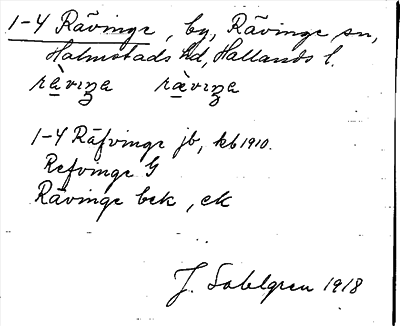 1-4 Rävinge, by, Rävinge sn,
Halmstads hd, Hallands l.
1-4 Räfvinge jb, kb 1910.
Refvinge G
Rävinge bek, ek
J. Sahlgren 1918